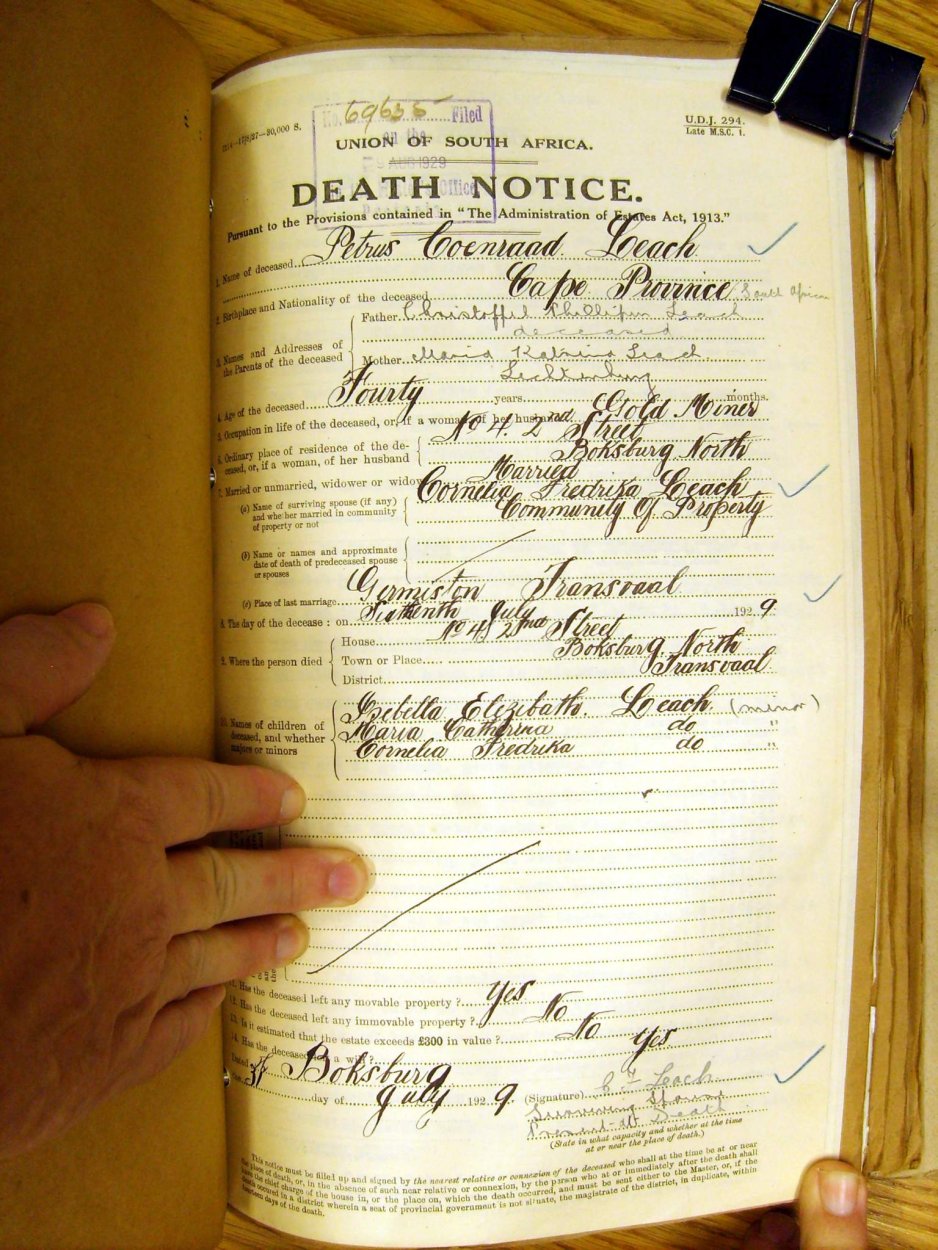 No. 69635 Filed
on the
9 AUG 1929
Office
30,000 S.
U.D.J. 294.
Late M.S.C. 1.
UNION OF SOUTH AFRICA.
DEATH NOTICE.
Pursuant to the Provisions contained in "The Administration of Estates Act, 1913."
1. Name of deceased Petrus Coenraad Leach
2. Birthplace and Nationality of the deceased Cape Province South African
3. Names and Addresses of the Parents of the deceased
Father Christoffel Phillipus Leach
deceased
Mother Maria Katrina Leach
4. Age of the deceased Fourty years months.
5. Occupation in life of the deceased, or, if a woman, of her husband Gold Miner
6. Ordinary place of residence of the deceased, or, if a woman, of her husband No 4. 2nd Street
Boksburg North
7. Married or unmarried, widower or widow Married
(a) Name of surviving spouse (if any) and whether married in community of property or not
Cornelia Fredrika Leach
Community Of Property
(b) Name or names and approximate date of death of predeceased spouse or spouses
(c) Place of last marriage Germiston Transvaal
8. The day of the decease: on July 1929
9. Where the person died
House No 4 2nd Street
Town or Place Boksburg North
District Transvaal
10. Names of children of deceased, and whether majors or minors
Isebella Elezibath. Leach (minor)
Maria Catherina do "
Cornelia Fredrika do "
11. Has the deceased left any movable property? Yes
12. Has the deceased left any immovable property? No
13. Is it estimated that the estate exceeds £300 in value? No
14. Has the deceased a will? Yes
Dated Boksburg
day of July 1929
(Signature) C F Leach
Surviving Spouse
Present at Death
(State in what capacity and whether at the time
at or near the place of death.)
This notice must be filled up and signed by the nearest relative or connexion of the deceased who shall at the time be at or near
the place of death, or, in the absence of such near relative or connexion, by the person who at or immediately after the death shall
have the chief charge of the house in, or the place on, which the death occurred, and must be sent either to the Master, or, if the
death occured in a district wherein a seat of provincial government is not situate, the magistrate of the district, in duplicate, within
fourteen days of the death.